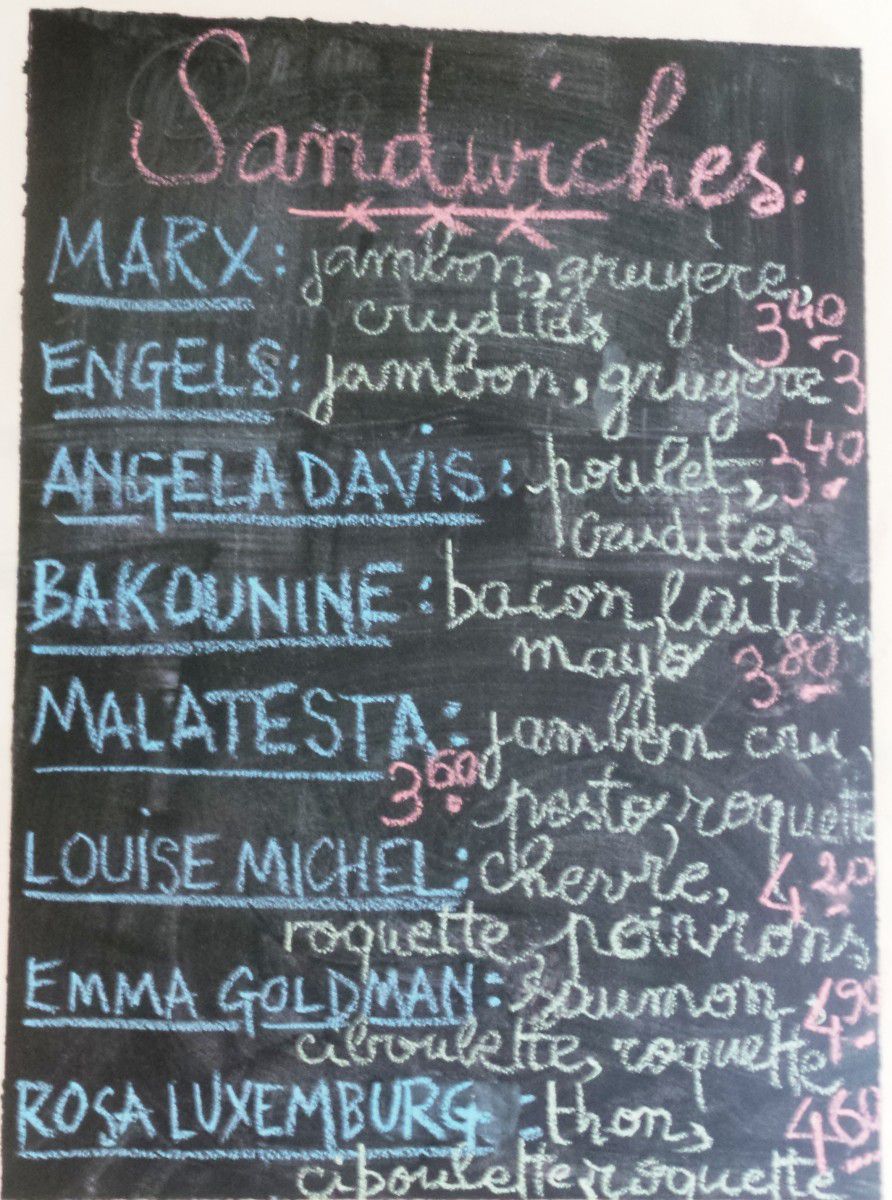 Sandwiches:
MARX: jambon, gruyère,
crudités 3 40
ENGELS: jambon, gruyère 3
ANGELA DAVIS: poulet, 3 40
crudités
BAKOUNINE: bacon, laitue,
mayo 3 80
MALATESTA: jambon cru,
3 60 pesto, roquette
LOUISE MICHEL: chèvre, 4 20
roquette, poivrons
EMMA GOLDMAN: saumon 4 90
ciboulette, roquette
ROSA LUXEMBURG: thon, 4 60
ciboulette roquette